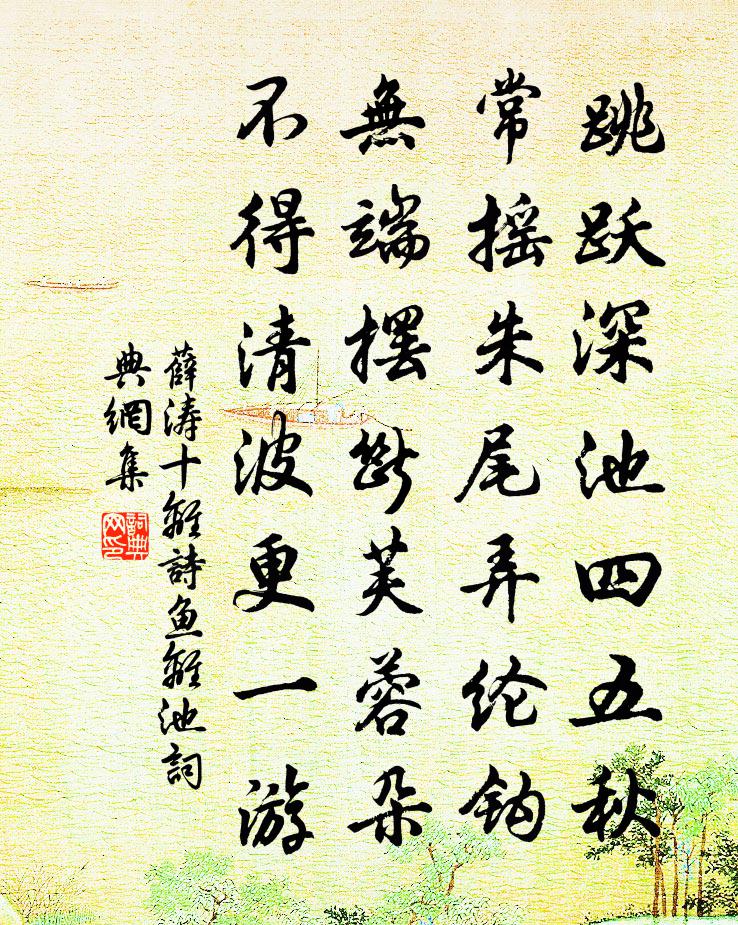 跳跃深池四五秋
常摇朱尾弄纶钩
無端摆断芙蓉朵
不得清波更一游
薛涛十離詩鱼離池詞
典網集
詞典网印